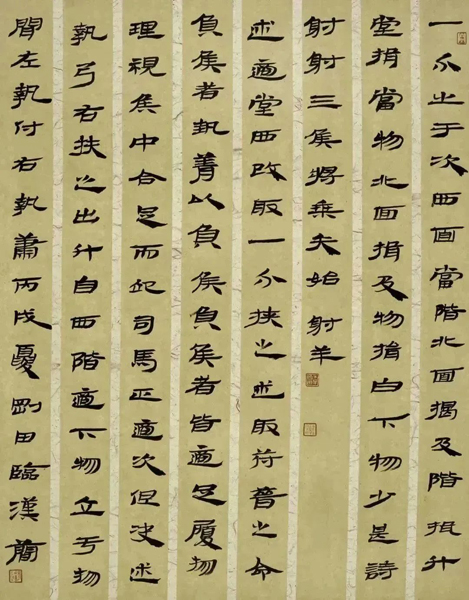 一个止于次西面當階北面揖及階揖升
堂揖當物北面揖及物揖白下物少是詩
射射三侯將乘矢始射羊
述適堂西改取一个挾之述取符普之命
負侯者執菁以負侯負侯者皆適足履物
理視侯中合足而竢司馬正適次但決述
執弓右挾之出升自西階適下物立于物
間左執付右執蕭丙戌夏剛田臨漢簡